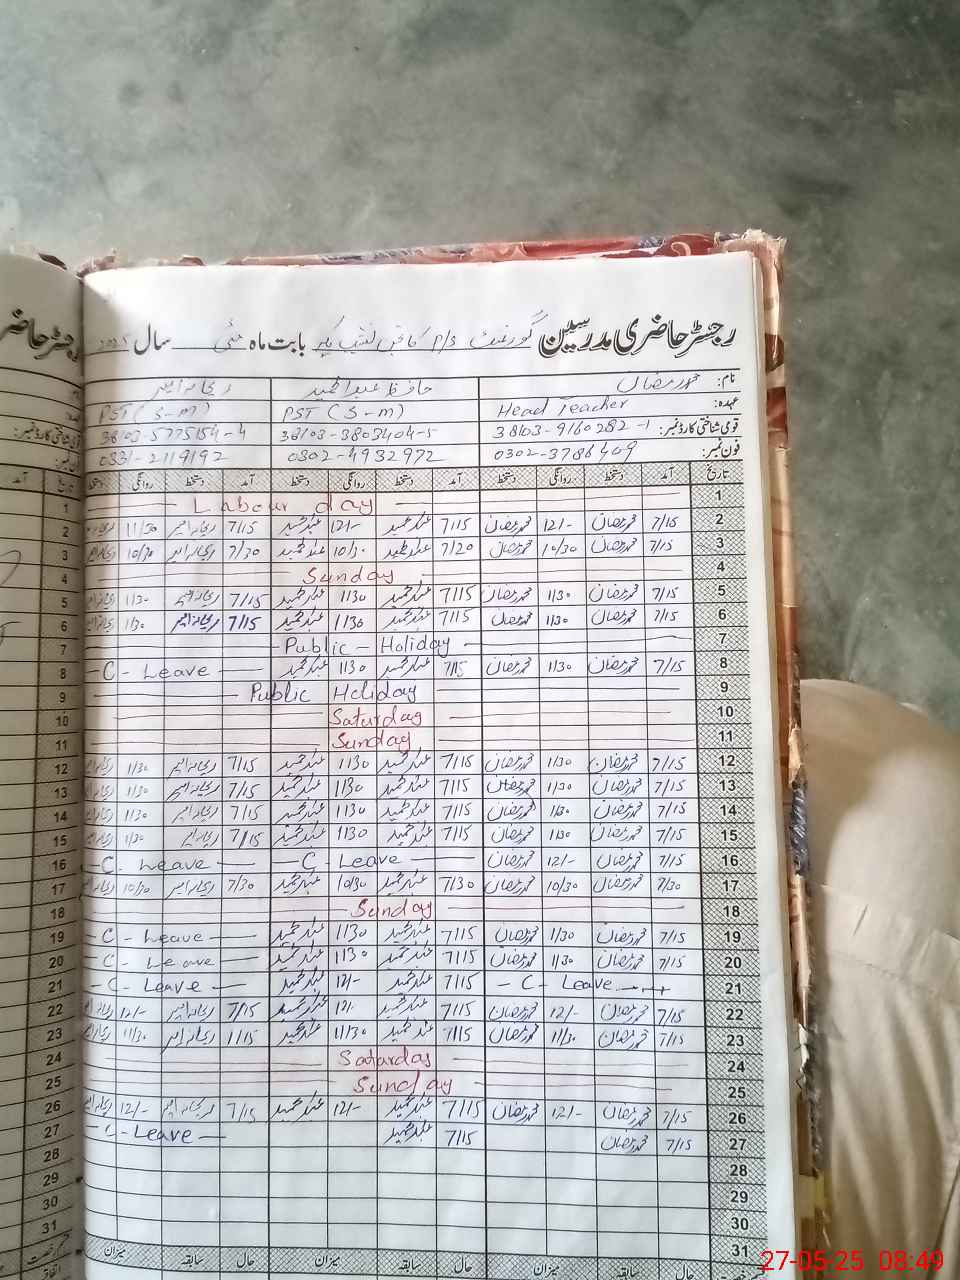 رجسٹر حاضری مدرسین گورنمنٹ P/S بابت ماہ مئی سال 2025
نام: محمد رمضان حافظ عبدالحمید
عہدہ: Head Teacher PST (S-m) PST (S-m)
قومی شناختی کارڈ نمبر: 38103-9160282-1 38103-3803404-5 38103-5775154-4
فون نمبر: 0302-3786409 0302-4932972 0331-2119192
تاریخ آمد دستخط روانگی دستخط آمد دستخط روانگی دستخط آمد دستخط روانگی دستخط
1 Labour day
2 7/15 محمد رمضان 12/- محمد رمضان 7/15 عبدالحمید 12/- عبدالحمید 7/15 11/30
3 7/15 محمد رمضان 10/30 محمد رمضان 7/20 عبدالحمید 10/30 عبدالحمید 7/30 10/30
4 Sunday
5 7/15 محمد رمضان 1/30 محمد رمضان 7/15 عبدالحمید 1/30 عبدالحمید 7/15 1/30
6 7/15 محمد رمضان 1/30 محمد رمضان 7/15 عبدالحمید 1/30 عبدالحمید 7/15 1/30
7 Public - Holiday
8 7/15 محمد رمضان 1/30 محمد رمضان 7/15 عبدالحمید 1/30 عبدالحمید C - Leave
9 Public Holiday
10 Saturday
11 Sunday
12 7/15 محمد رمضان 1/30 محمد رمضان 7/15 عبدالحمید 1/30 عبدالحمید 7/15 1/30
13 7/15 محمد رمضان 1/30 محمد رمضان 7/15 عبدالحمید 1/30 عبدالحمید 7/15 1/30
14 7/15 محمد رمضان 1/30 محمد رمضان 7/15 عبدالحمید 1/30 عبدالحمید 7/15 1/30
15 7/15 محمد رمضان 1/30 محمد رمضان 7/15 عبدالحمید 1/30 عبدالحمید 7/15 1/30
16 7/15 محمد رمضان 12/- محمد رمضان C - Leave C - Leave
17 7/30 محمد رمضان 10/30 محمد رمضان 7/30 عبدالحمید 10/30 عبدالحمید 7/30 10/30
18 Sunday
19 7/15 محمد رمضان 1/30 محمد رمضان 7/15 عبدالحمید 1/30 عبدالحمید C - Leave
20 7/15 محمد رمضان 1/30 محمد رمضان 7/15 عبدالحمید 1/30 عبدالحمید C - Leave
21 C - Leave 7/15 عبدالحمید 12/- عبدالحمید C - Leave
22 7/15 محمد رمضان 12/- محمد رمضان 7/15 عبدالحمید 12/- عبدالحمید 7/15 12/-
23 7/15 محمد رمضان 11/30 محمد رمضان 7/15 عبدالحمید 11/30 عبدالحمید 11/15 11/30
24 Saturday
25 Sunday
26 7/15 محمد رمضان 12/- محمد رمضان 7/15 عبدالحمید 12/- عبدالحمید 7/15 12/-
27 7/15 محمد رمضان 7/15 عبدالحمید C - Leave
28
29
30
31
حال سابقہ میزان حال سابقہ میزان حال سابقہ میزان
27-05-25 08:49